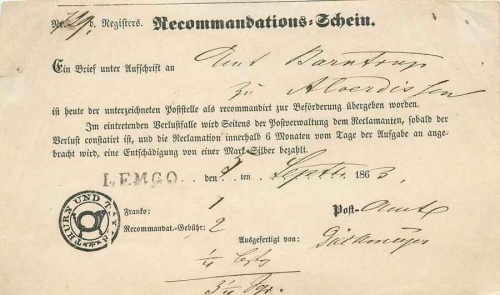 Nr. 729 d. Registers. Recommandations-Schein.
Ein Brief unter Aufschrift an Amt Barntrup
zu Alverdissen
ist heute der unterzeichneten Poststelle als recommandirt zur Beförderung übergeben worden.
Im eintretenden Verlustfalle wird Seitens der Postverwaltung dem Reclamanten, sobald der
Verlust constatirt ist, und die Reclamation innerhalb 6 Monaten vom Tage der Aufgabe an ange-
bracht wird, eine Entschädigung von einer Mark Silber bezahlt.
LEMGO. den ten Septbr. 1863.
THURN UND T.
Franko: 1
Post-Amt
Recommandat.-Gebühr: 2
Ausgefertigt von:
1/4
3 1/4 Sgr.